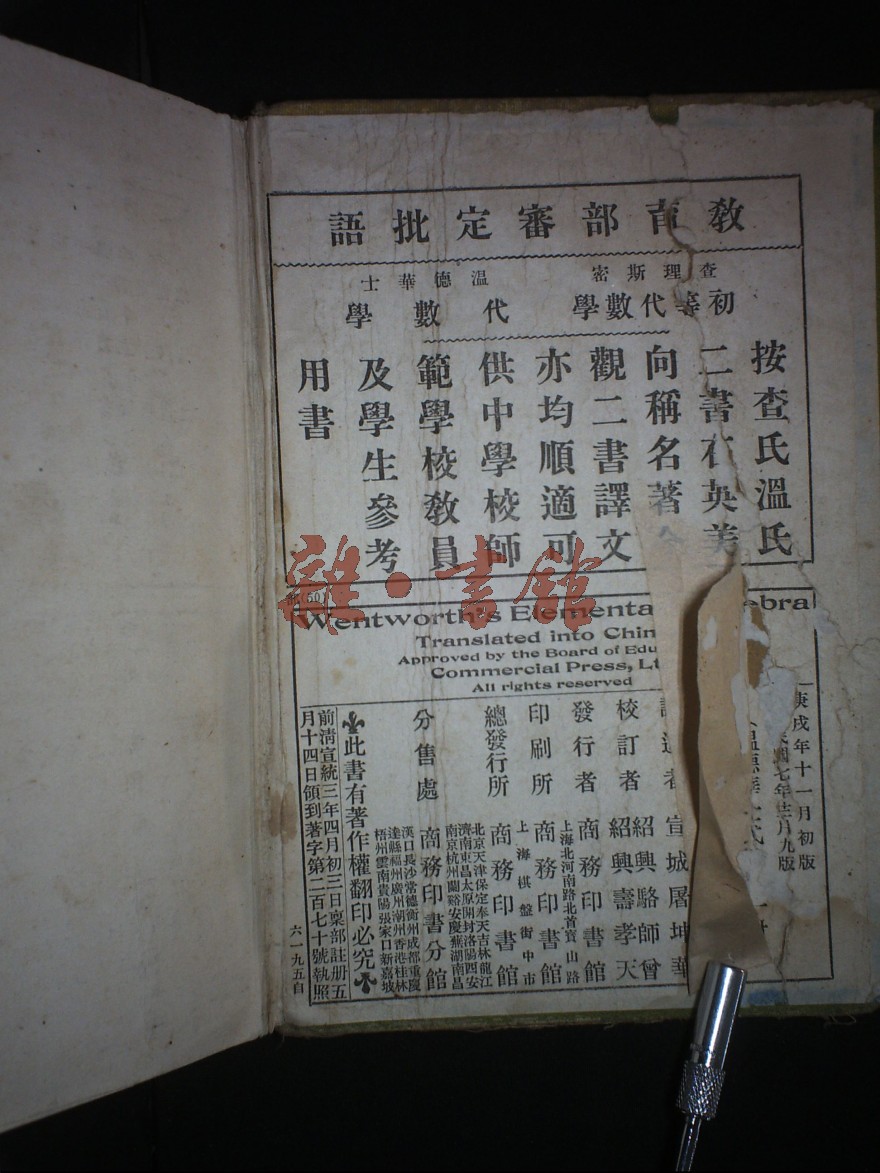 教育部審定批語
查理斯密
初等代數學
溫德華士
代數學
按查氏溫氏
二書在英美
向稱名著
觀二書譯文
亦均順適可
供中學校師
範學校教員
及學生參考
用書
雜·書館
Wentworth's Elementa ebra
Translated into Chin
Approved by the Board of Edu
Commercial Press, Lt
All rights reserved
庚戌年十一月初版
年 月九版
者 宣城屠坤華
校訂者 紹興駱師曾 紹興壽孝天
發行者 商務印書館
印刷所 上海北河南路北首寶山路 商務印書館
總發行所 上海棋盤街中市 商務印書館
分售處 北京天津保定奉天吉林龍江
濟南東昌太原開封洛陽西安
南京杭州蘭谿安慶蕪湖南昌
商務印書分館
漢口長沙常德衡州成都重慶
達縣福州廣州潮州香港桂林
梧州雲南貴陽張家口新嘉坡
此書有著作權翻印必究
前清宣統三年四月初三日稟部註册五
月十四日領到著字第二百七十號執照
六一九五自